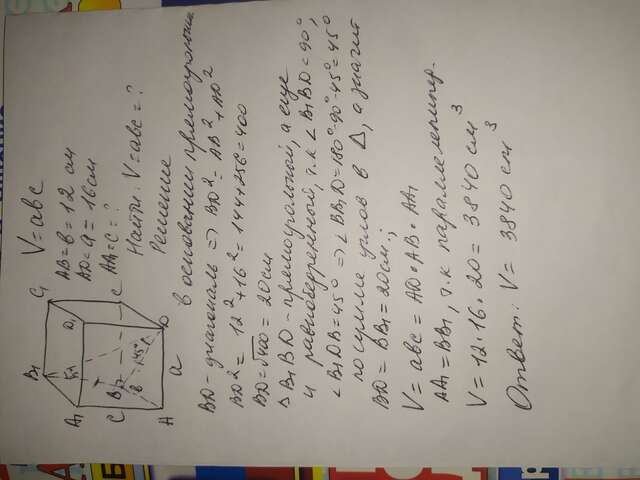 V = abc
AB = b = 12 см
AD = a = 16 см
AA₁ = C = ?
Найти: V = abc = ?
Решение
BD - диагональ в основании прямоугольник
=> BD² = AB² + AD²
BD² = 12² + 16² = 144 + 256 = 400
BD = √400 = 20 см
Δ B₁BD - прямоугольный, а еще
и равнобедренный, т.к ∠B₁BD = 90°,
∠B₁DB = 45° => ∠BB₁D = 180°-90°-45° = 45°
по сумме углов в Δ, а значит
BD = BB₁ = 20 см;
V = abc = AD • AB • AA₁
AA₁ = BB₁, т.к параллелепипед.
V = 12 • 16 • 20 = 3840 см³
Ответ: V = 3840 см³
B₁
C₁
A₁
D₁
C
B
45°
D
C
b
A
a